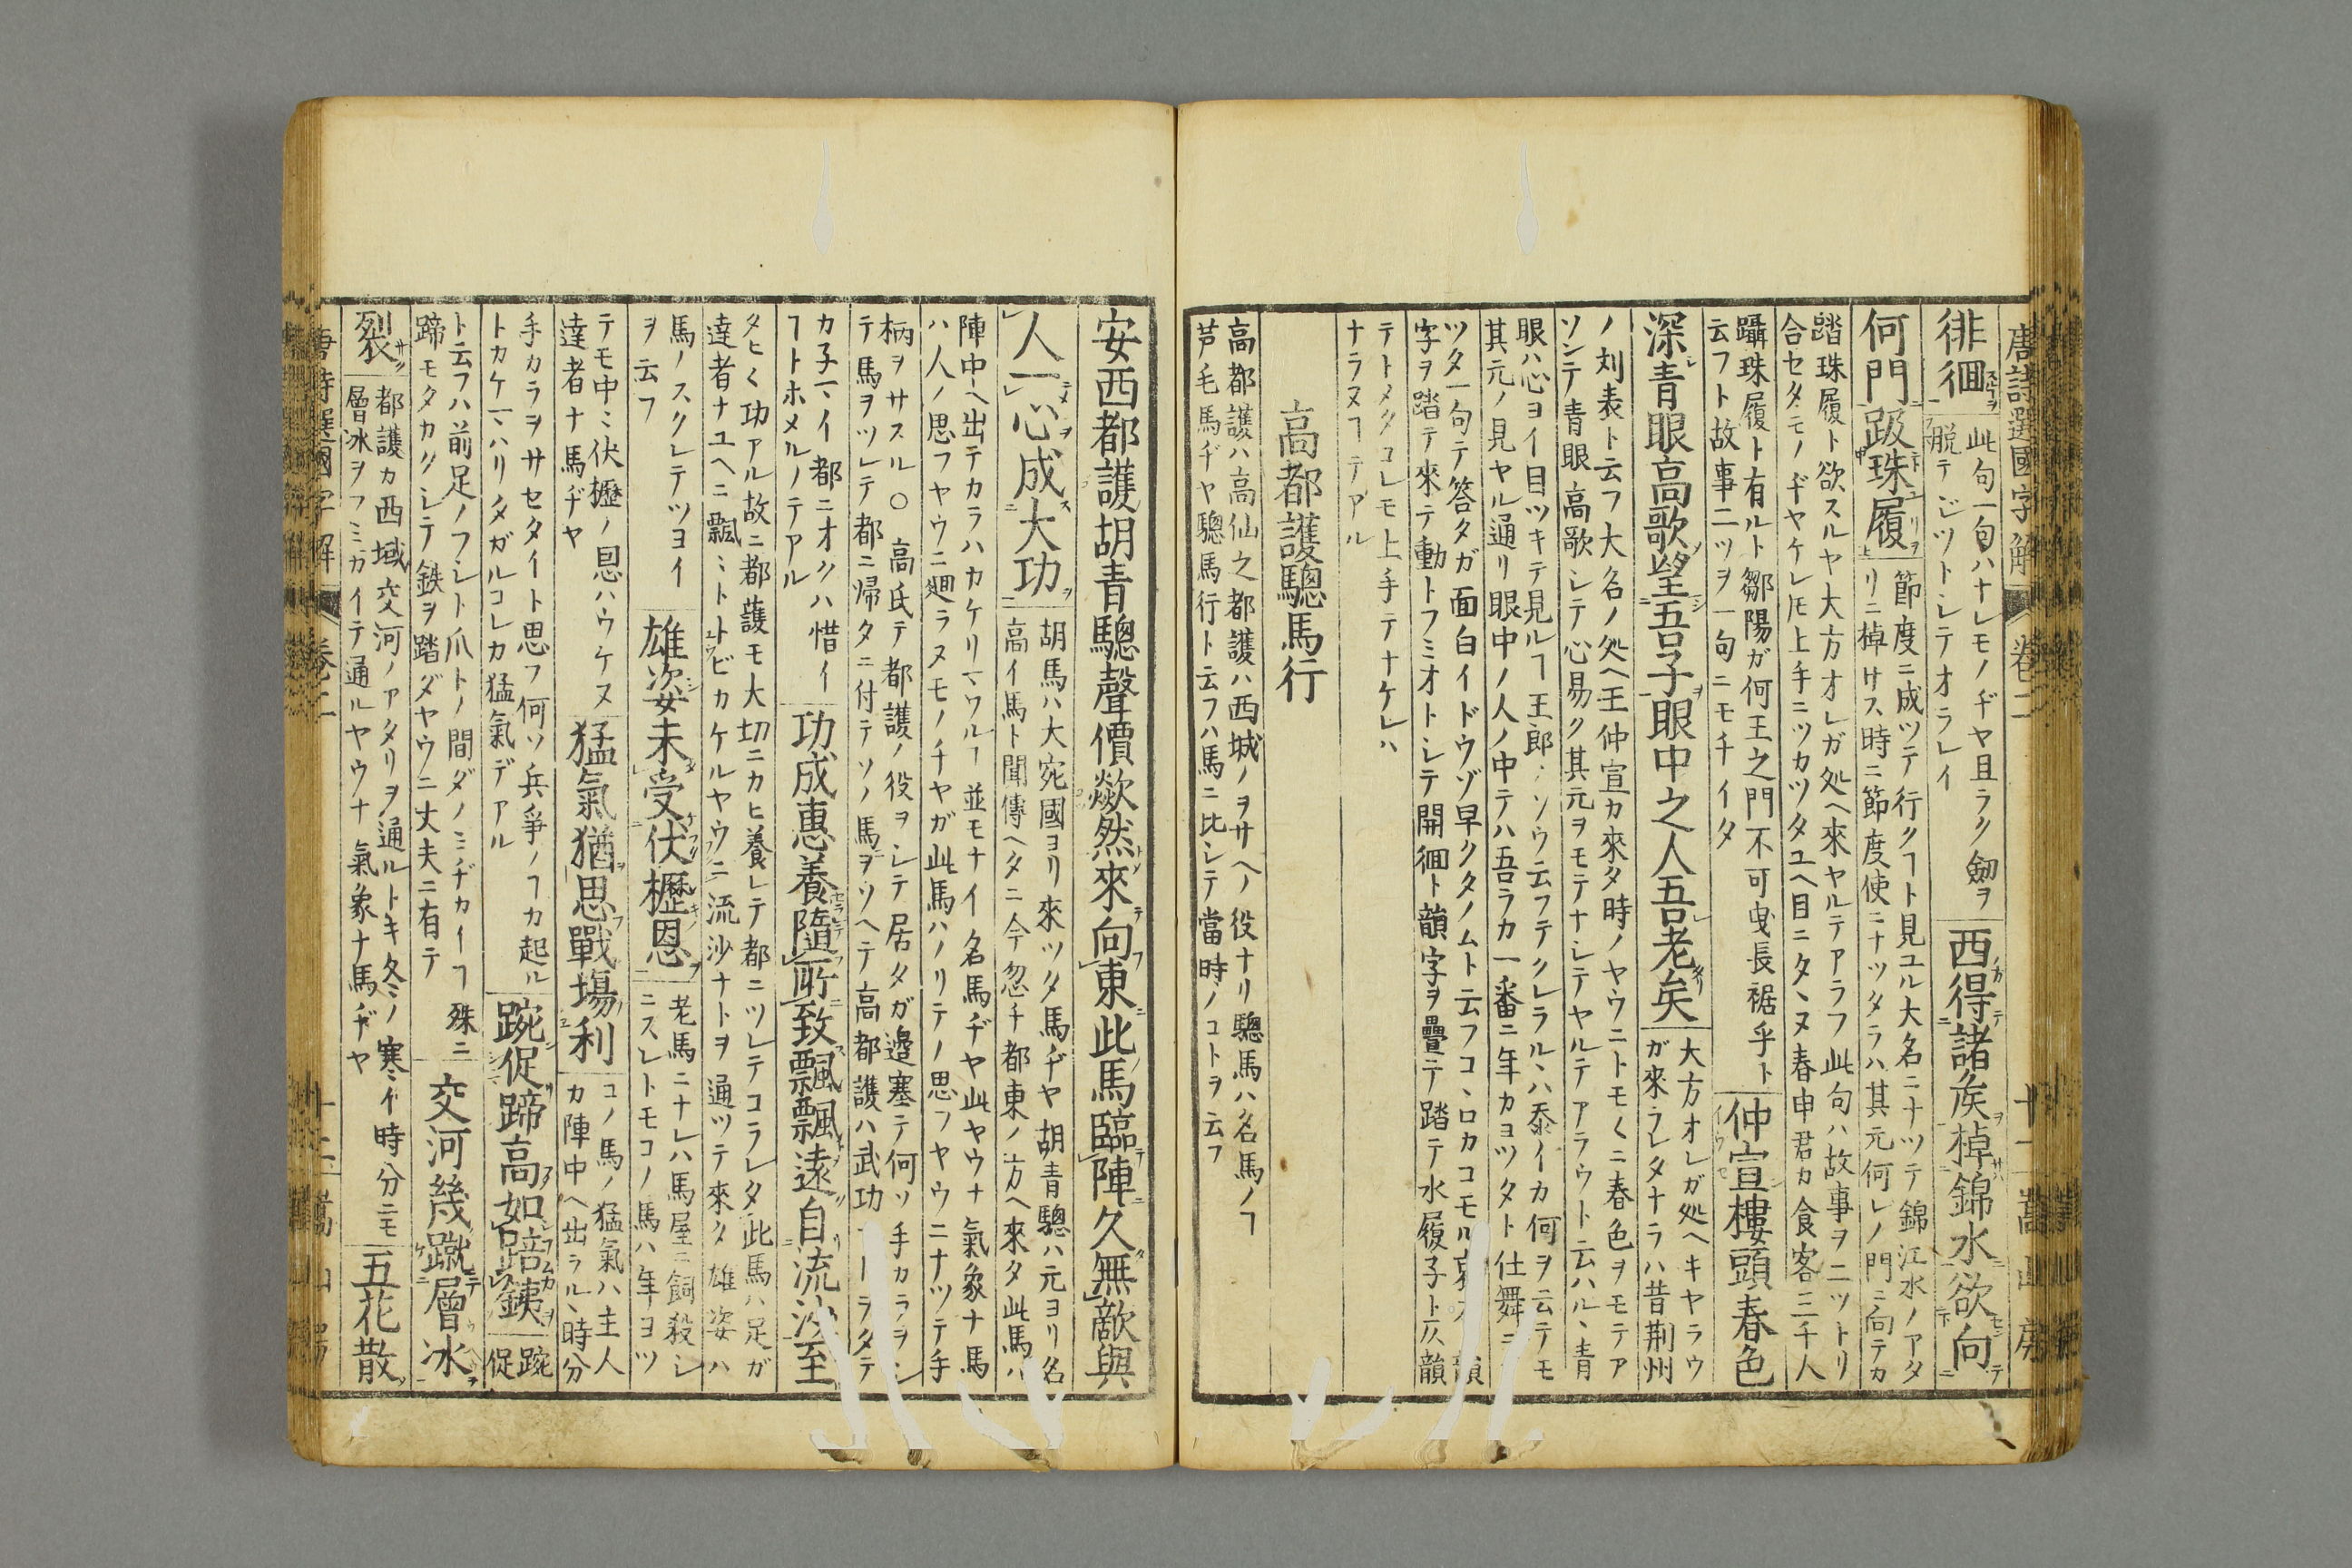 唐詩選國字解 卷二 十一 嵩山房
徘徊
此句一句ハナレモノヂヤ且ラク劒ヲ
脱テジツトシテオラレイ
西得諸矦棹錦水欲向
何門趿珠履
節度ニ成ツテ行クヿト見ユル大名ニナツテ錦江水ノアタ
リニ棹サス時ニ節度使ニナツタラハ其元何レノ門ニ向テカ
踏珠履ト欲スルヤ大方オレガ処ヘ來ヤルテアラフ此句ハ故事ヲ二ツトリ
合セタモノヂヤケレ𪜈上手ニツカツタユヘ目ニタヽヌ春申君カ食客三千人
躡珠履ト有ルト鄒陽ガ何王之門不可曳長裾乎ト
云フト故事二ツヲ一句ニモチイタ
仲宣樓頭春色
深青眼高歌望吾子眼中之人吾老矣
大方オレガ処ヘキヤラウ
ガ來ラレタナラハ昔荆州
ノ刘表ト云フ大名ノ処ヘ王仲宣カ來タ時ノヤウニトモ〱ニ春色ヲモテア
ソンテ青眼高歌シテ心易ク其元ヲモテナシテヤルテアラウト云ハルヽ青
眼ハ心ヨイ目ツキテ見ルヿ王郎ヽソウ云フテクレラルヽハ忝イカ何ヲ云テモ
其元ノ見ヤル通リ眼中ノ人ノ中テハ吾ラカ一番ニ年カヨツタト仕舞ニ
ツタ一句テ答タガ面白イドウゾ早クタノムト云フコヽロカコモル
字ヲ踏テ來テ動トフミオトシテ開徊ト韻字ヲ疊テ踏テ水履子ト仄韻
テトメタコレモ上手テナケレハ
ナラヌヿテアル
高都護驄馬行
高都護ハ高仙之都護ハ西域ノヲサヘノ役ナリ驄馬ハ名馬ノヿ
芦毛馬ヂヤ驄馬行ト云フハ馬ニ比シテ當時ノコトヲ云フ
安西都護胡青驄聲價歘然來向東此馬臨陣久無敵與
人一心成大功
胡馬ハ大宛國ヨリ來ツタ馬ヂヤ胡青驄ハ元ヨリ名
高イ馬ト聞傳ヘタニ今忽チ都東ノ方ヘ來タ此馬ハ
陣中ヘ出テカラハカケリマワルヿ並モナイ名馬ヂヤ此ヤウナ氣象ナ馬
ハ人ノ思フヤウニ廻ラヌモノチヤガ此馬ハノリテノ思フヤウニナツテ手
柄ヲサスル〇高氏テ都護ノ役ヲシテ居タガ邉塞テ何ソ手カラヲシ
テ馬ヲツレテ都ニ帰タニ付テソノ馬ヲソヘテ高都護ハ武功
カ子マイ都ニオクハ惜イ
ヿトホメルノテアル
功成惠養隨所致飄飄遠自流沙至
タヒ〱功アル故ニ都護モ大切ニカヒ養レテ都ニツレテコラレタ此馬ハ足ガ
達者ナユヘニ飄ヽトトビカケルヤウニ流沙ナトヲ通ツテ來タ雄姿ハ
馬ノスクレテツヨイ
ヲ云フ
雄姿未受伏櫪恩
老馬ニナレハ馬屋ニ飼殺シ
ニスレトモコノ馬ハ年ヨツ
テモ中ミ伏櫪ノ恩ハウケヌ
達者ナ馬ヂヤ
猛氣猶思戰場利
コノ馬ノ猛氣ハ主人
カ陣中ヘ出ラルヽ時分
手カラヲサセタイト思フ何ソ兵爭ノヿカ起ル
トカケマハリタガルコレカ猛氣デアル
踠促蹄高如踣鐵
踠
促
ト云フハ前足ノフシト爪トノ間ダノミヂカイヿ殊ニ
蹄モタカクシテ鉄ヲ踏ダヤウニ丈夫ニ有テ
交河幾蹴層冰
裂
都護カ西域交河ノアタリヲ通ルトキ冬ミノ寒ミイ時分ニモ
層冰ヲフミカイテ通ルヤウナ氣象ナ馬ヂヤ
五花散
唐詩選國字解 卷二